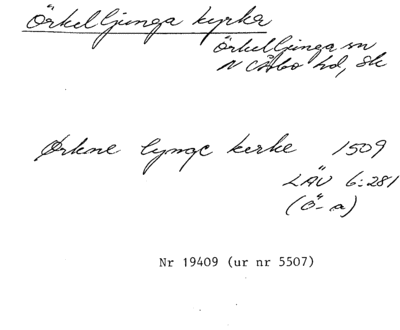 Örkelljunga kyrka
Örkelljunga sn
N Åsbo hd, Sk
Ørkne lyngc kerke 1509
LÄU 6:281
(Ö-a)
Nr 19409 (ur nr 5507)